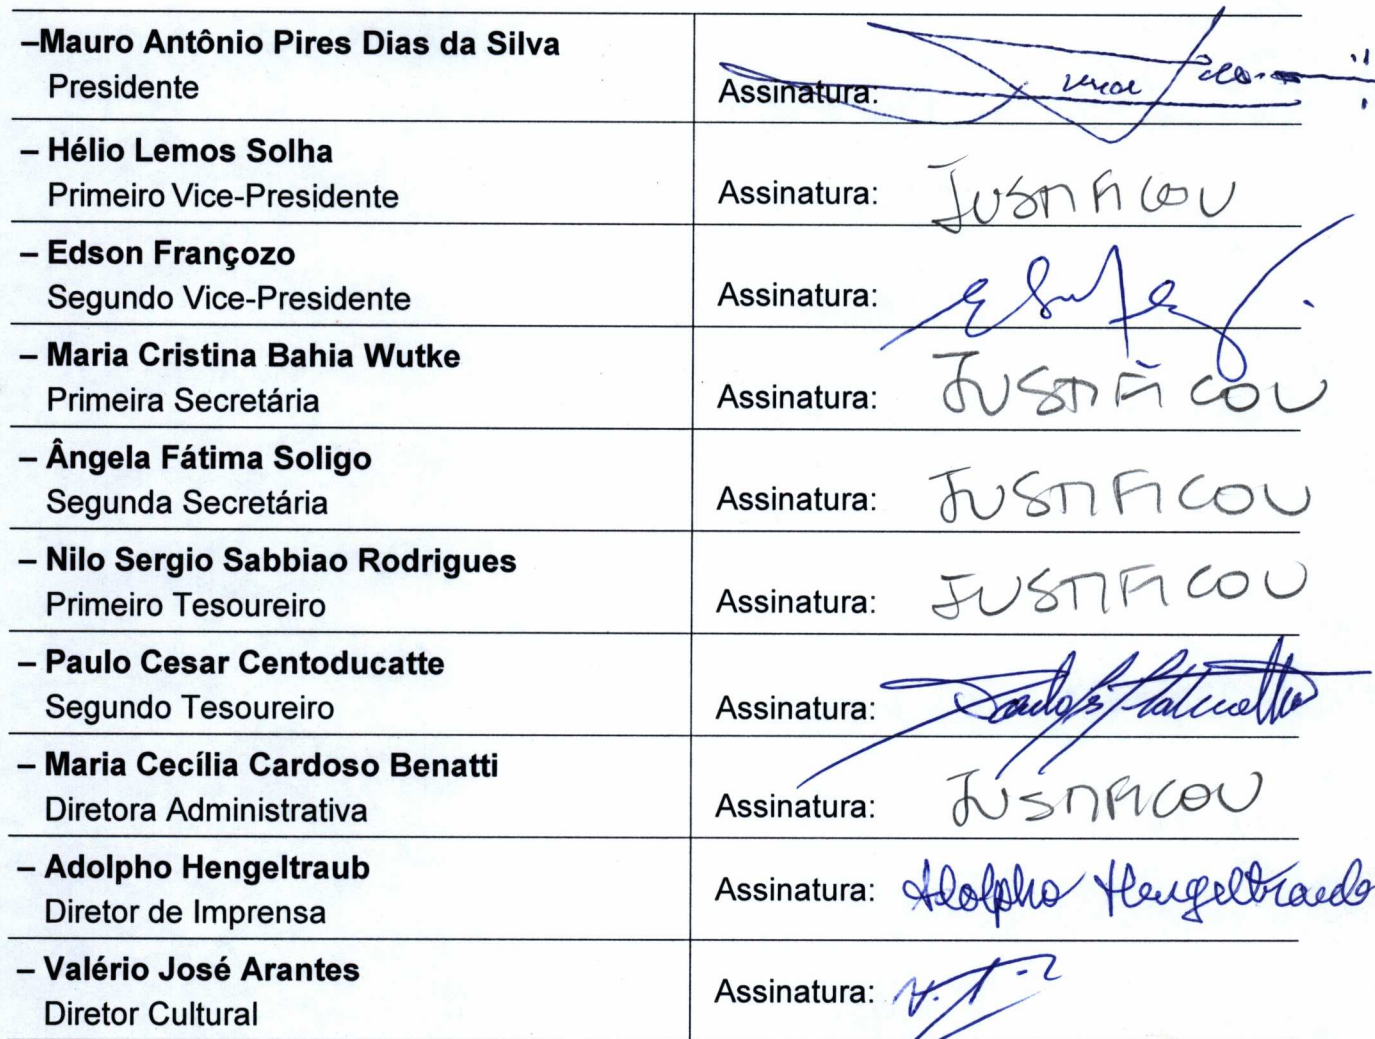 –Mauro Antônio Pires Dias da Silva
Presidente
Assinatura:
– Hélio Lemos Solha
Primeiro Vice-Presidente
Assinatura: JUSTIFICOU
– Edson Françozo
Segundo Vice-Presidente
Assinatura:
– Maria Cristina Bahia Wutke
Primeira Secretária
Assinatura: JUSTIFICOU
– Ângela Fátima Soligo
Segunda Secretária
Assinatura: JUSTIFICOU
– Nilo Sergio Sabbiao Rodrigues
Primeiro Tesoureiro
Assinatura: JUSTIFICOU
– Paulo Cesar Centoducatte
Segundo Tesoureiro
Assinatura:
– Maria Cecília Cardoso Benatti
Diretora Administrativa
Assinatura: JUSTIFICOU
– Adolpho Hengeltraub
Diretor de Imprensa
Assinatura: Adolpho
– Valério José Arantes
Diretor Cultural
Assinatura: